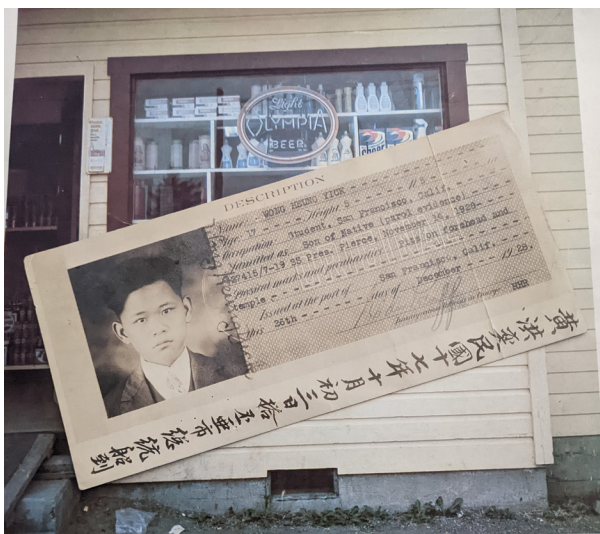 Light
OLYMPIA
BEER
Cheer
DESCRIPTION
Name WONG HEUNG YICK
Age 17 Height 5
Occupation Student, San Francisco, Calif.
Admitted as Son of Native (parol evidence)
27415/7-19 SS Pres. Pierce, November 14, 1928-
Physical marks and peculiarities Pits on forehead and
temple
Issued at the port of San Francisco, Calif.
this 26th day of December 1928.
Immigration Officer in Charge.
黄洪奕民國十七年十月初三日搭丕亜市總統船到